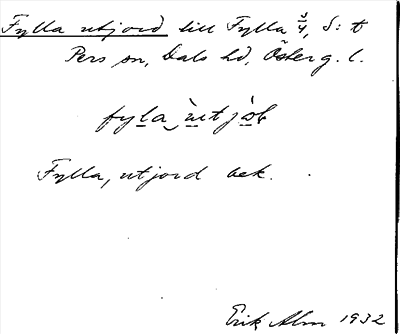 Fylla utjord till Fylla 3/4, S:t
Pers sn, Dals hd, Österg. l.
Fylla, utjord bek.
Erik Alm 1932